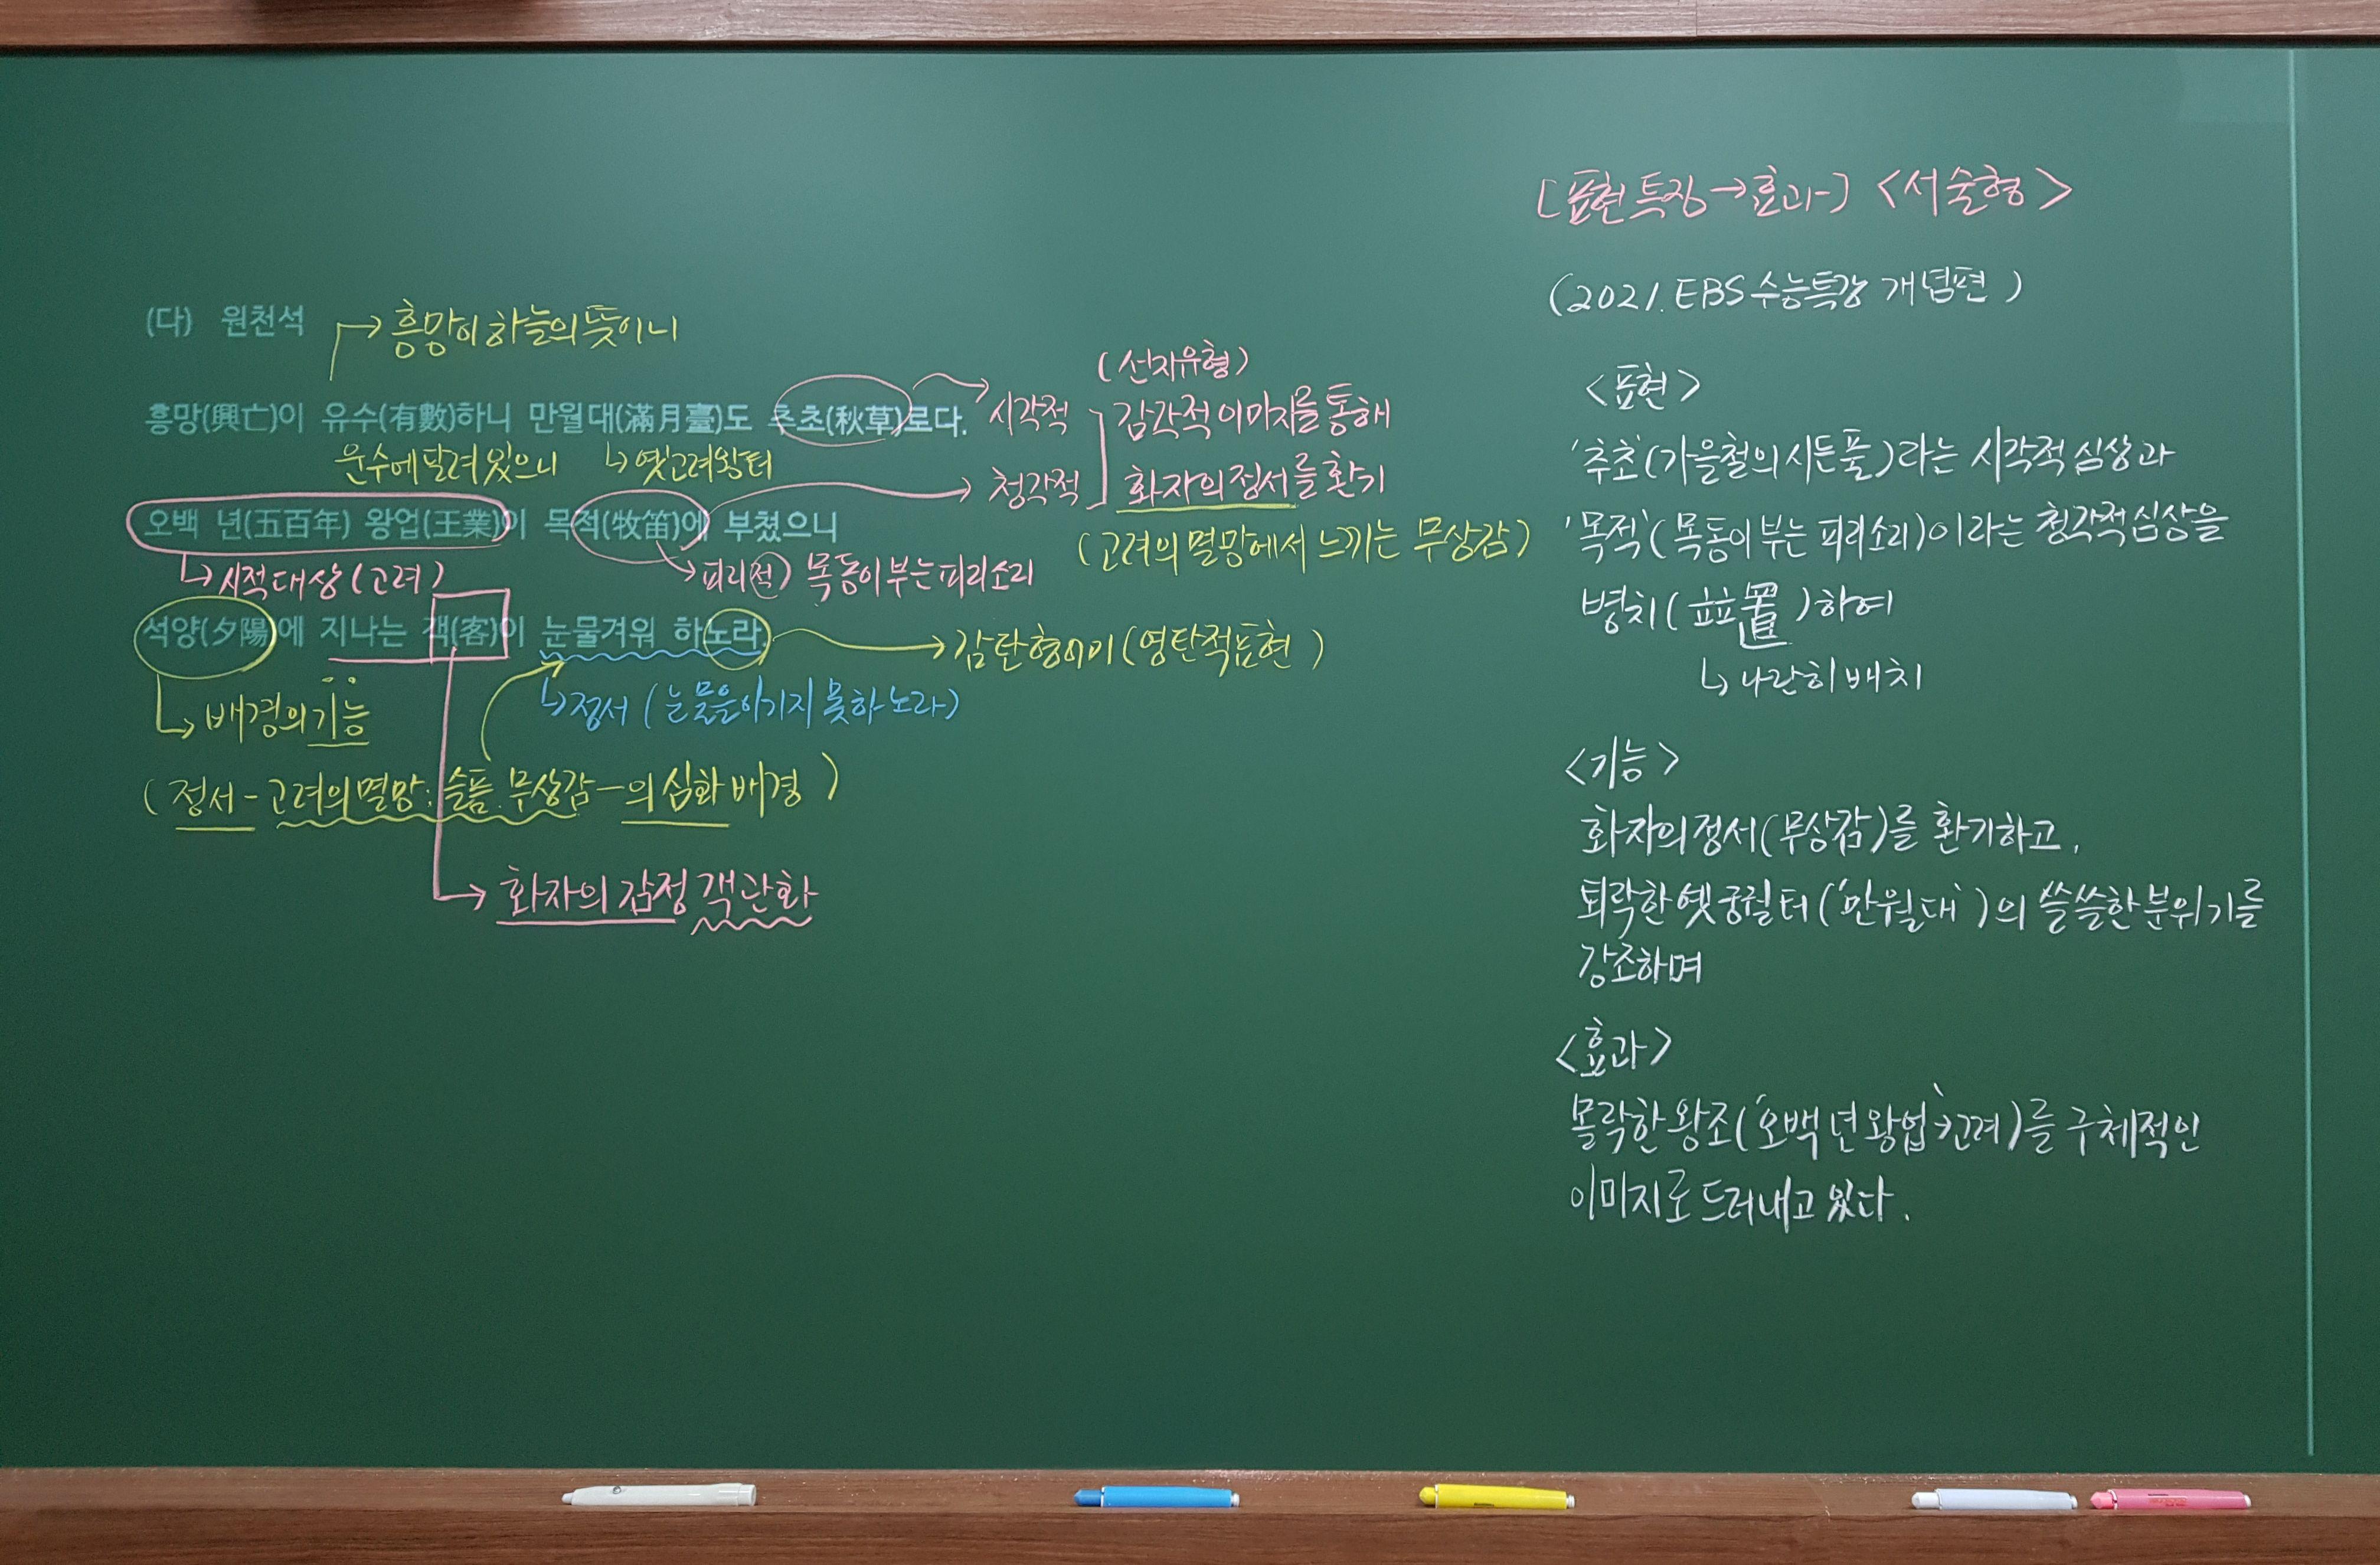 (다) 원천석
→ 흥망이 하늘의 뜻이니
흥망(興亡)이 유수(有數)하니 만월대(滿月臺)도 추초(秋草)로다.
운수에 달려 있으니 ↳ 옛 고려왕터
오백 년(五百年) 왕업(王業)이 목적(牧笛)에 부쳤으니
↳ 시적대상(고려) → 피리(적) 목동이 부는 피리소리
석양(夕陽)에 지나는 객(客)이 눈물겨워 하노라.
→ 감탄형어미(영탄적표현)
↳ 배경의 기능
↳ 정서 (눈물을 이기지 못하노라)
(정서-고려의 멸망: 슬픔, 무상감-의 심화 배경)
→ 화자의 감정 객관화
(선지유형)
시각적 감각적 이미지를 통해
청각적 화자의 정서를 환기
(고려의 멸망에서 느끼는 무상감)
[표현 특징→효과] <서술형>
(2021. EBS 수능특강 개념편)
<표현>
'추초'(가을철의 시든풀)라는 시각적 심상과
'목적'(목동이 부는 피리소리)이라는 청각적 심상을
병치(竝置)하여
↳ 나란히 배치
<기능>
화자의 정서(무상감)를 환기하고,
퇴락한 옛 궁궐터('만월대')의 쓸쓸한 분위기를
강조하며
<효과>
몰락한 왕조('오백 년 왕업'→고려)를 구체적인
이미지로 드러내고 있다.